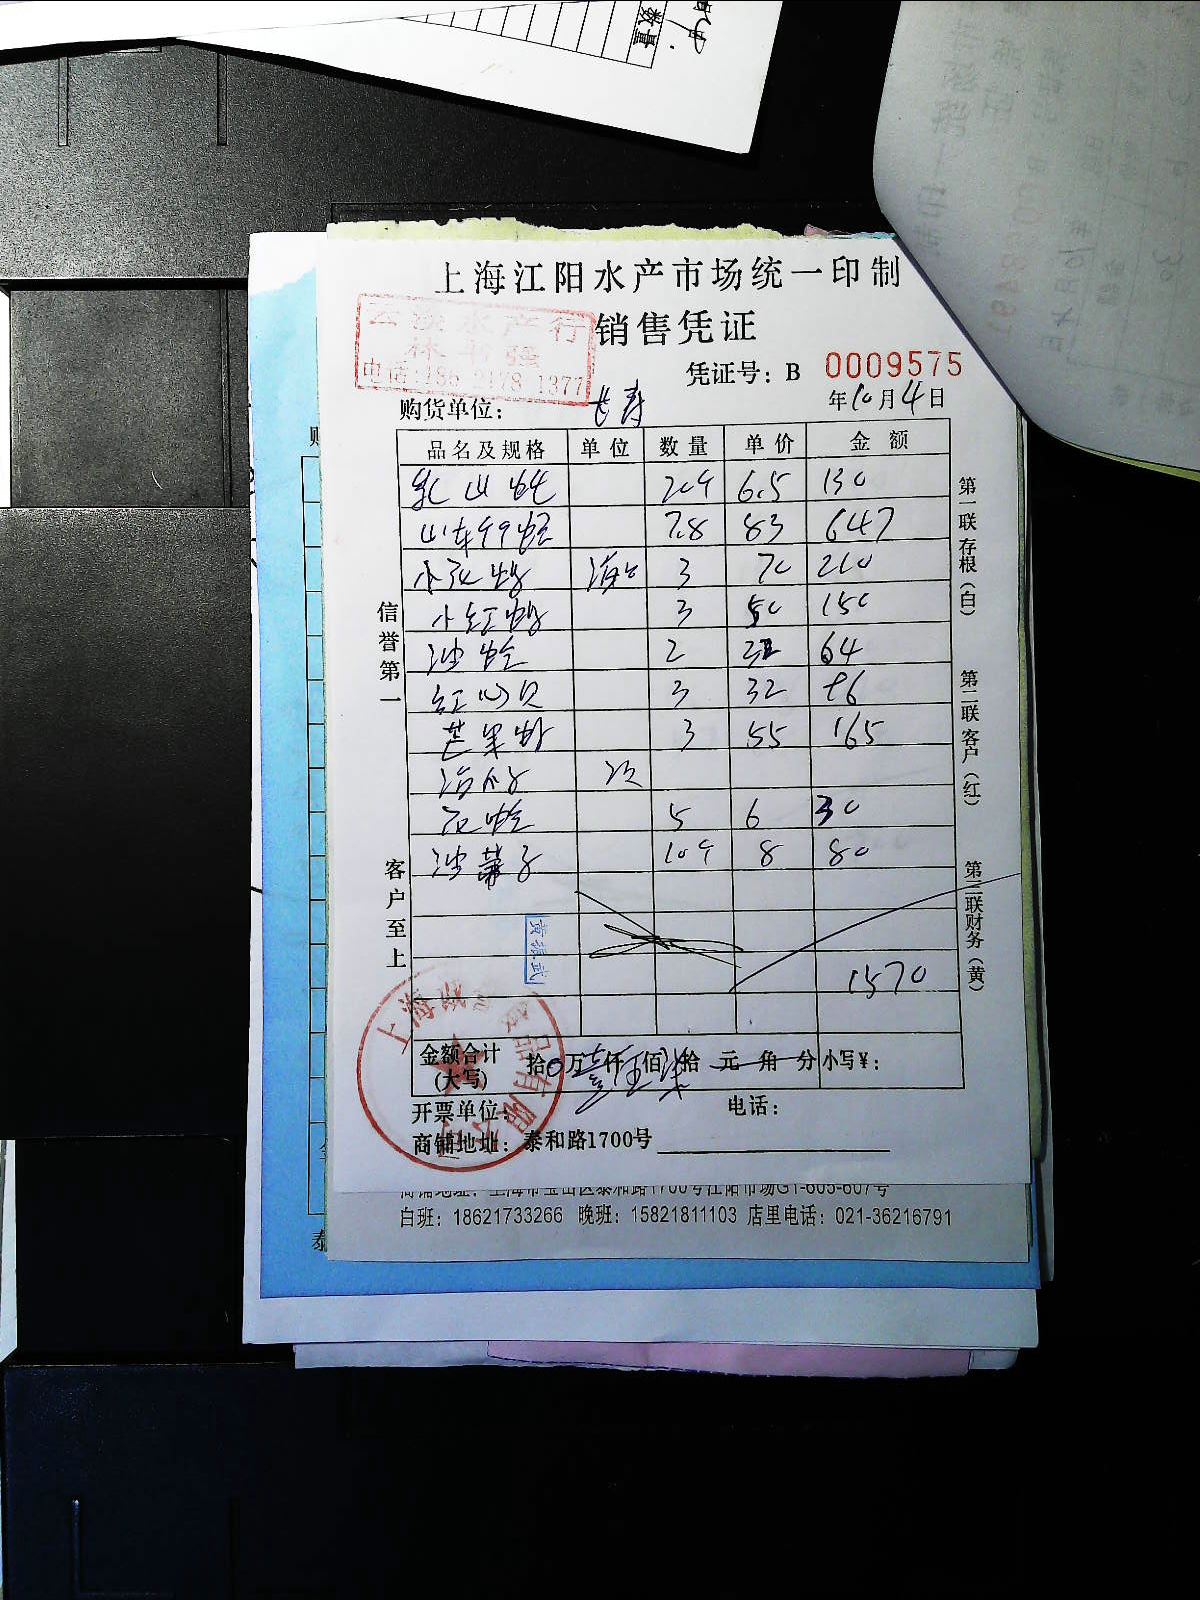 数量
上海江阳水产市场统一印制
销售凭证
水产行
电话:186 2178 1377
凭证号: B 0009575
购货单位: 长寿
年10月4日
品名及规格 单位 数量 单价 金额
乳山蚝 20个 6.5 130
山东 7.8 83 647
小 3 70 210
小红蛤 3 50 150
油蛤 2 32 64
红心贝 3 32 96
芒果 3 55 165
次
花蛤 5 6 30
10个 8 80
黄振武
1570
金额合计(大写) 拾0万壹仟伍佰柒拾 元 角 分 小写¥:
开票单位: 电话:
商铺地址: 泰和路1700号
信誉第一
客户至上
第一联存根(白)
第二联客户(红)
第三联财务(黄)
上海 品有限公司
商铺地址: 上海市宝山区泰和路1700号江阳市场G1-605-607号
白班: 18621733266 晚班: 15821811103 店里电话: 021-36216791
泰